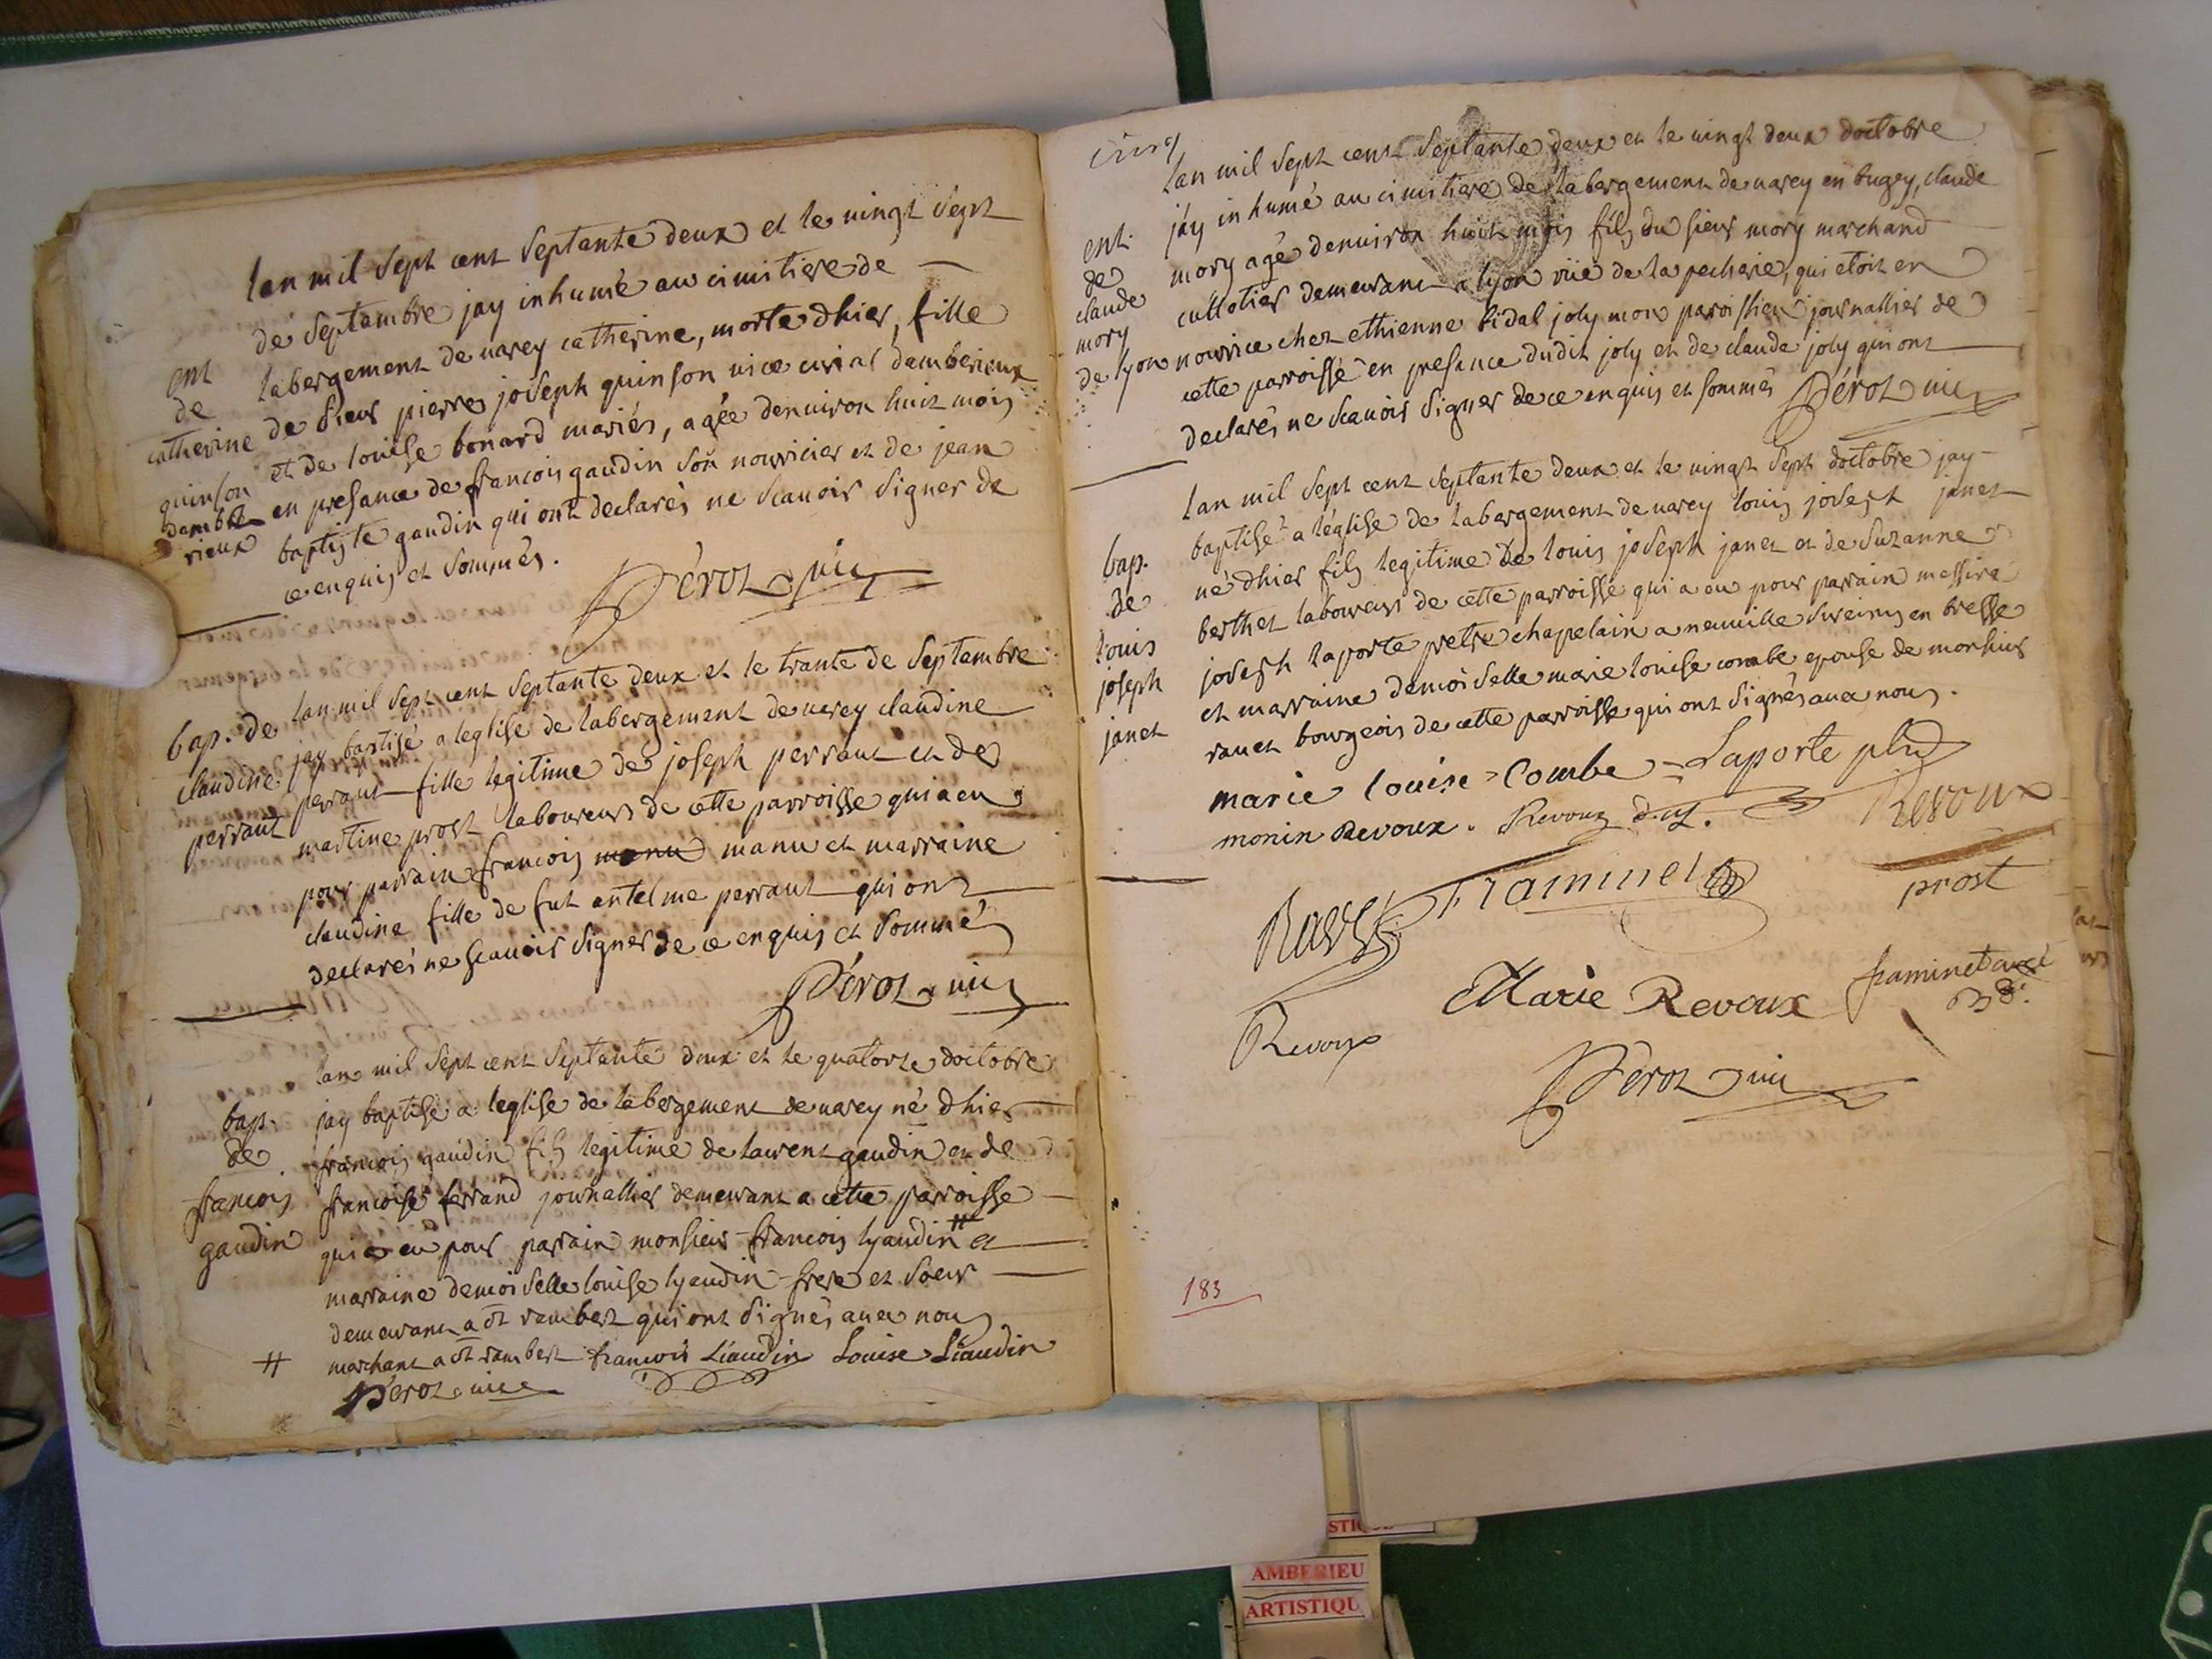 lan mil sept cent septante deux et le vingt sept
de septambre jay inhumé au cimitiere de
labergement de varey catherine, morte dhier, fille
de sieur pierre joseph quinson vice curial dambérieux
et de louise bonard mariés, agée denviron huit mois
en presance de francois gaudin son nourricier et de jean
baptiste gaudin qui ont declarés ne scavoir signer de
ce enquis et sommés.
ent
de
catherine
quinson
dambé
rieux
Dérot vic
lan mil sept cent septante deux et le trante de septambre
jay baptisé a leglise de labergement de varey claudine
perraut fille legitime de joseph perraut et de
martine prost laboureurs de cette parroisse qui a eu
pour parrain francois manu manu et marraine
claudine fille de fut entelme perraut qui ont
declarés ne scavoir signer de ce enquis et sommé
bap. de
claudine
perraut
Dérot vic
lan mil sept cent septante deux et le quatorze doctobre
jay baptisé a leglise de labergement de varey né dhier
francois gaudin fils legitime de laurent gaudin et de
francoise ferrand journallier demeurant a cette parroisse
qui a eu pour parrain monsieur francois lyaudin # et
marraine demoiselle louise lyaudin frere et soeur
demeurant a st rambert qui ont signés avec nous
# marchant a st rambert francois Liaudin Louise Liaudin
Dérot vice
bap.
de
francois
gaudin
cinq
lan mil sept cent septante deux et le vingt deux doctobre
jáy inhumé au cimitiere de labergement de varey en bugey, claude
mory agé denviron huit mois fils du sieur mory marchand
culotier demeurant a lyon rüe de la pecherie, qui etoit en
nourrice chez ethienne bidal joly mon paroissien journallier de
cette parroisse en presance dudit joly et de claude joly qui ont
declarés ne scavoir signer de ce enquis et sommés Dérot vic
ent.
de
claude
mory
de lyon
lan mil sept cent septante deux et le vingt sept doctobre jay
baptisé a léglise de labargement de varey louis joseph janet
né dhier fils legitime de louis joseph janet et de suzanne
berthet laboureurs de cette parroisse qui a eu pour parrain messire
joseph laporte pretre chapelain a neuville sur eins en bresse
et marraine demoiselle marie louise combe epouse de monsieur
ravet bourgeois de cette parroisse qui ont signés avec nous.
bap.
de
louis
joseph
janet
marie louise Combe Laporte
monin Revoux. Revoux
Revoux
Framinet
prost
Marie Revoux
framinet
Revoux
Dérot vic
183
AMBERIEU
ARTISTIQU